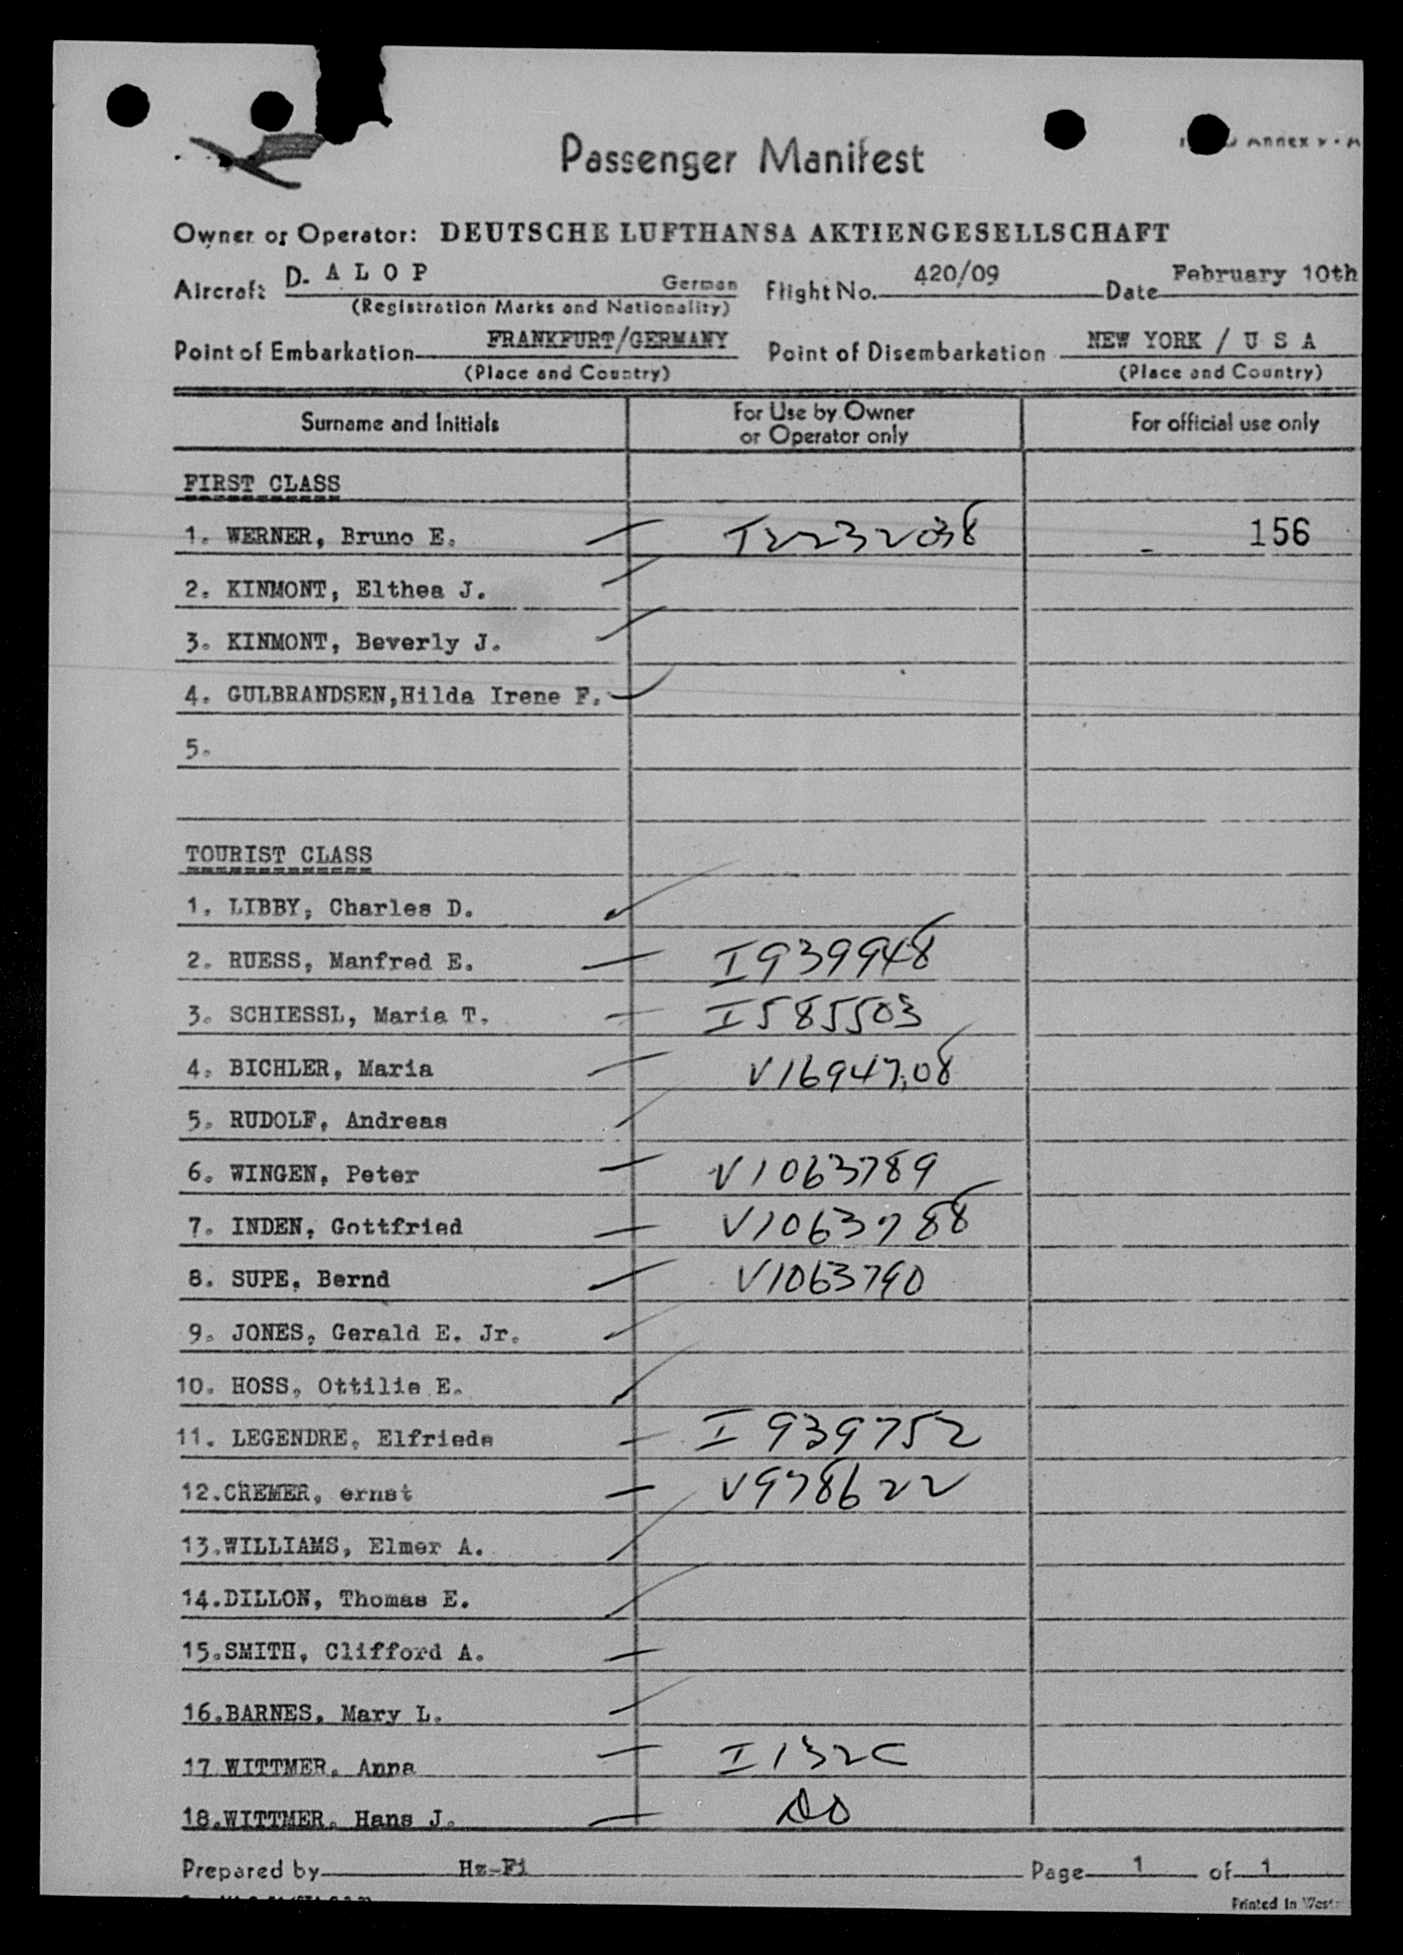 Passenger Manifest
Annex
Owner or Operator: DEUTSCHE LUFTHANSA AKTIENGESELLSCHAFT
Aircraft D- A L O P German Flight No. 420/09 Date February 10th
(Registration Marks and Nationality)
Point of Embarkation FRANKFURT/GERMANY Point of Disembarkation NEW YORK / U S A
(Place and Country) (Place and Country)
Surname and Initials For Use by Owner or Operator only For official use only
FIRST CLASS
1. WERNER, Bruno E. I2232038 156
2. KINMONT, Elthea J.
3. KINMONT, Beverly J.
4. GULBRANDSEN,Hilda Irene F.
5.
TOURIST CLASS
1. LIBBY, Charles D.
2. RUESS, Manfred E. I939948
3. SCHIESSL, Maria T. I585503
4. BICHLER, Maria V1694708
5. RUDOLF, Andreas
6. WINGEN, Peter V1063789
7. INDEN, Gottfried V1063788
8. SUPE, Bernd V1063790
9. JONES, Gerald E. Jr.
10. HOSS, Ottilie E.
11. LEGENDRE, Elfriede I939752
12.CREMER, ernst V978622
13.WILLIAMS, Elmer A.
14.DILLON, Thomas E.
15.SMITH, Clifford A.
16.BARNES, Mary L.
17 WITTMER, Anna I132C
18.WITTMER, Hans J. DO
Prepared by Hz-Fi Page 1 of 1
Printed in